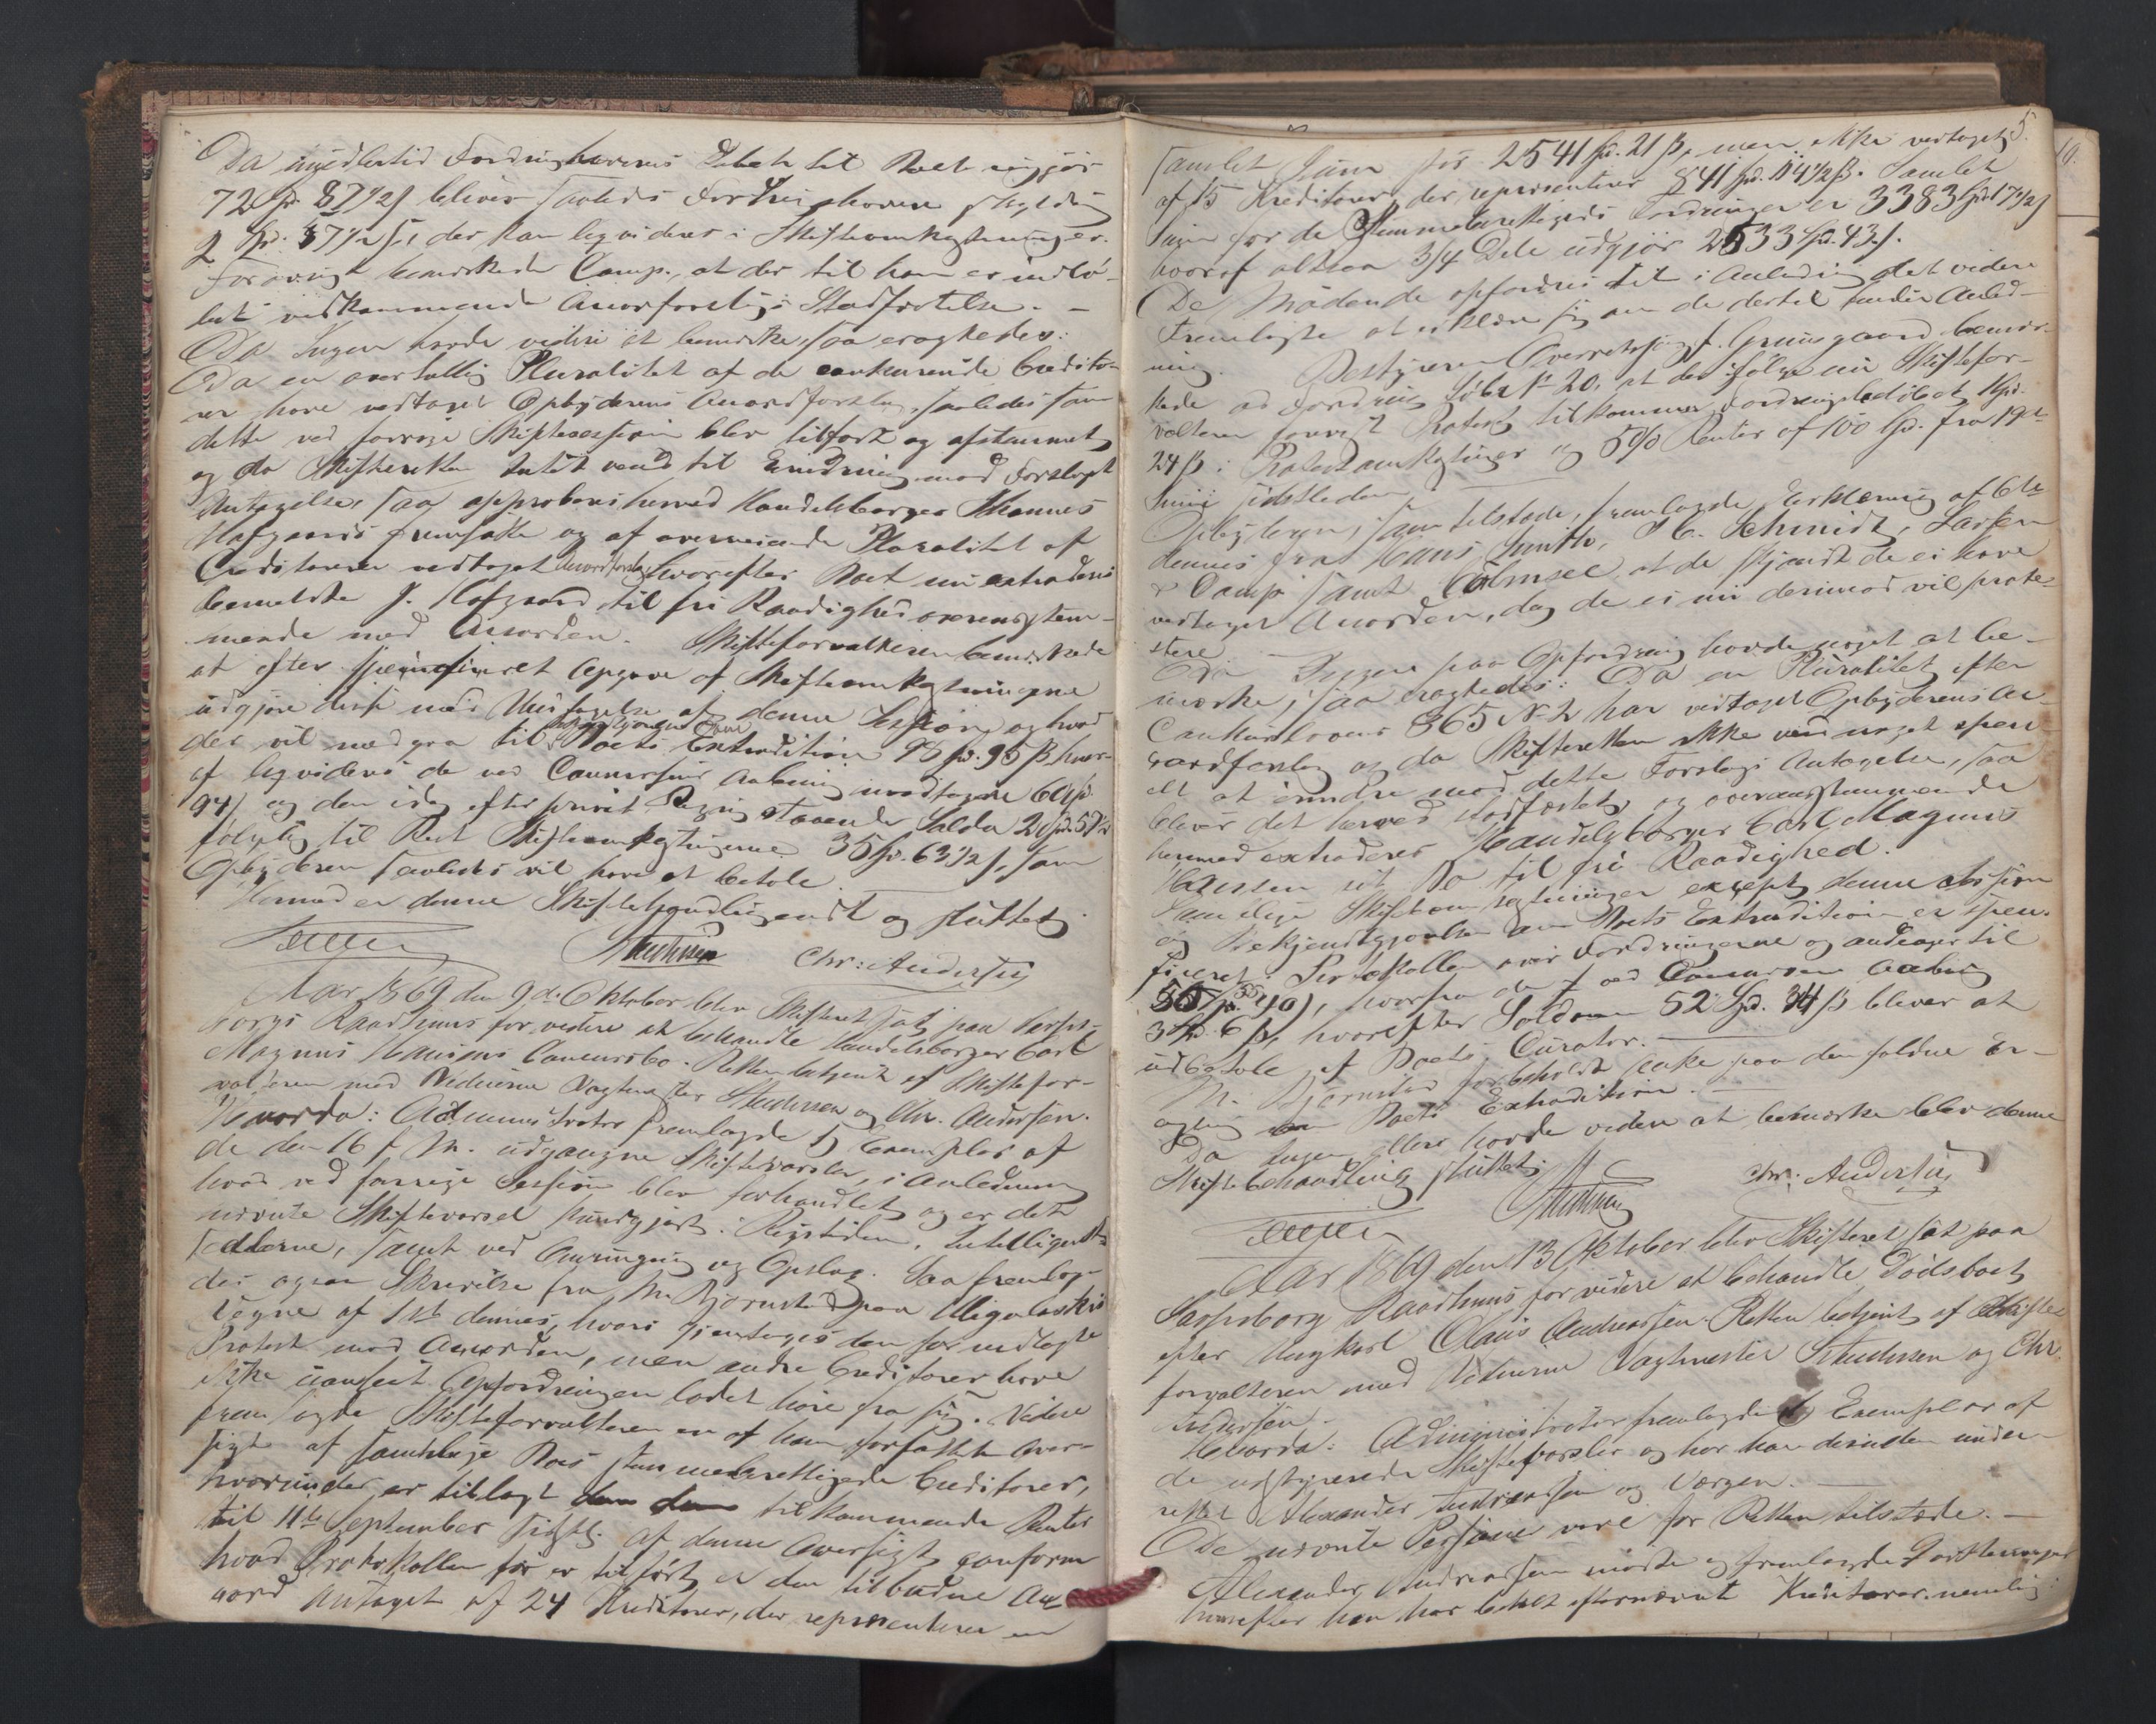 Da imidlertid Fordringhaverens Debet til Boet udgjør
72 Spd. 87 1/2 s bliver saaledes Fordringshaveren skyldig
2 Spd. 57 1/2 s, der kan liqvideres i Skifteomkostninger.
Forøvrigt bemærkede Comp., at der til ham er indlø-
bet vedkommende Accordforslags Stadfæstelse. –
Da Ingen havde videre at bemærke, saa eragtedes:
Da en overtallig Pluralitet af de concurrende Credito-
rer have vedtaget Opbyderens Accordforslag, saaledes som
dette ved forrige Skiftesession blev tilført og afstemmet,
og da Skifteretten Intet veed til Erindring mod Forslagets
Antagelse, saa approberes herved Handelsborger Johannes
Hofgaards fremsatte og af overveiende Pluralitet af
Creditorerne vedtaget Accordforslag hvorefter Boet nu extraderes
bemeldte J. Hofgaard til fri Raadighed overensstem-
mende med Accorden. Skifteforvalteren bemærkede
at efter specificeret Opgave af Skifteomkostningerne
udgjøre disse med Undtagelse af denne Session og hvad
der vil medgaa til Bekjendtgjørelse om Boets Extradition 98 Spd. 95 ß, hvor-
af liqvideres de ved Concursens Aabning modtagne 60 Spd.
94 s og den idag efter privat Regning staaende Saldo 2 Spd. 57 1/2
følgelig til Rest Skifteomkostningerne 35 Spd. 63 1/2 s, som
Opbyderen saaledes vil have at betale.
Hermed er denne Skiftebehandling endt og sluttet.
Studsrsen Chr: Andersen
Aar 1869 den 9de Oktober blev Skifteret sat paa Sarps-
borgs Raadhuus for videre at behandle Handelsborger Carl
Magnus Hansens Concursbo. Retten betjent af Skiftefor-
valteren med Vidnerne Vagtmester Studsrsen og Chr. Andersen.
Hvorda: Administrator fremlagde 1 Exemplar af
de den 16 f. M. udgangne Skiftevarsler, i Anledning
hvad ved forrige Session blev forhandlet, og er det
nævnte Skiftevarsel kundgjort i Rigstidn. Intelligents-
sedlerne, samt ved Omringning og Opslag. Saa fremlag-
des ogsaa Skrivelse fra M. Bjørnstad paa Aligulastkis
Vegne af 1ste dennes, hvori gjentages den før nedlagte
Protest mod Accorden, men andre Creditorer have
ikke uanseet Opfordringen ladet høre fra sig. Videre
fremlagde Skifteforvalteren en af ham forfattet Over-
sigt af samtlige Boets stemmeberettigede Creditorer,
hvorunder er tillagt tilkommende Renter
til 11te September sidstl. Af denne Oversigt, conform
hvad Protokollen før er tilført, er den tilbudne Ac-
cord antaget af 24 Kreditorer, der repræsenterer en
5.
samlet Sum for 2541 Spd. 21 ß, men ikke vedtaget
af 15 Kreditorer, der repræsenterer 841 Spd. 114 1/2 ß. Samlet
Sum for de Stemmeberettigedes Fordringer er 3383 Spd. 17 1/2 s
hvoraf altsaa 3/4 Dele udgjør 2533 Spd. 43 s.
De Mødende opfordres til i Anledning det videre
Fremlagte at erklære sig om de dertil finder Anled-
ning. Bestyreren Overretssagf. Gruusgaard bemær-
kede ad Fordring Løbe No 20, at der ifølge nu Skiftefor-
valteren forevist Protest tilkommer Fordringsbeløbet 1 Spd.
24 ß i Protestomkostninger og 5% Renter af 100 Spd. fra 19de
Juni sidstleden.
Opbyderen, som tilstede, fremlagde Erklæring af 6te
dennes fra Hans Smith, J. C. Schmidt, Larsen
& Comp. samt Olmsee at de skjøndt de ei have
vedtaget Accorden, dog de ei nu derimod vil prote-
stere.
Da Ingen paa Opfordring havde noget at be-
mærke, saa eragtedes: Da en Pluralitet efter
Conkurslovens § 65 N. 2 har vedtaget Opbyderens Ac-
cordforslag og da Skifteretten ikke veed noget speci-
elt at erindre mod dette Forslags Antagelse, saa
bliver det herved stadfæstet, og overensstemmende
hermed extraderes Handelsborger Carl Magnus
Hansen sit Bo til fri Raadighed.
Samtlige Skifteomkostninger except denne Session
og Bekjendtgjørelsen om Boets Extradition er speci-
ficeret i Protokollen over Fordringerne og andrager til
55 Spd. 40 s, hvorfra de ved Concursens Aabning
3 Spd. 6 ß, hvorefter Saldoen 52 Spd. 34 ß bliver at
udbetale af Boets Curator.
M. Bjørnstad forbeholdt Anke paa den faldne Er-
agtning om Boets Extradition.
Da Ingen ellers havde videre at bemærke blev denne
Skiftebehandling sluttet.
Studsrsen Chr: Andersen
Aar 1869 den 13 Oktober blev Skifteret sat paa
Sarpsborg Raadhuus for videre at behandle Dødsboet
efter Ungkarl Olaus Andreassen. Retten betjent af Skifte-
forvalteren med Vidnerne Vagtmester Studsrsen og Chr.
Andersen.
Hvorda: Administrator fremlagde 1 Exemplar af
de udstyrede Skiftevarsler og har han desuden under-
rettet Alexander Andreassen og Værgen.
De nævnte Personer vare for Retten tilstede. –
Alexander Andreassen mødte og fremlagde 9 Qvitteringer
hvorefter han har betalt efternævnte Kreditorer nemlig: